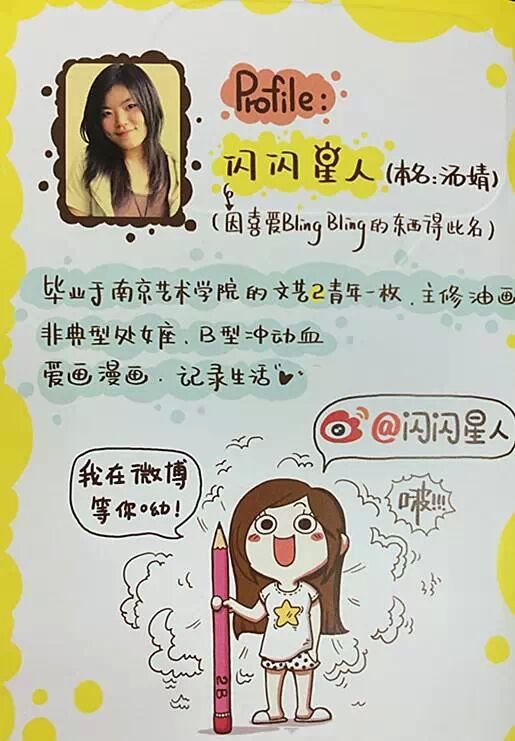 Profile:
闪闪星人(本名:汤婧)
(因喜爱Bling Bling的东西得此名)
毕业于南京艺术学院的文艺2青年一枚.主修油画
非典型处女座、B型冲动血
爱画漫画.记录生活
@闪闪星人
我在微博
等你呦!
啵!!!
2B